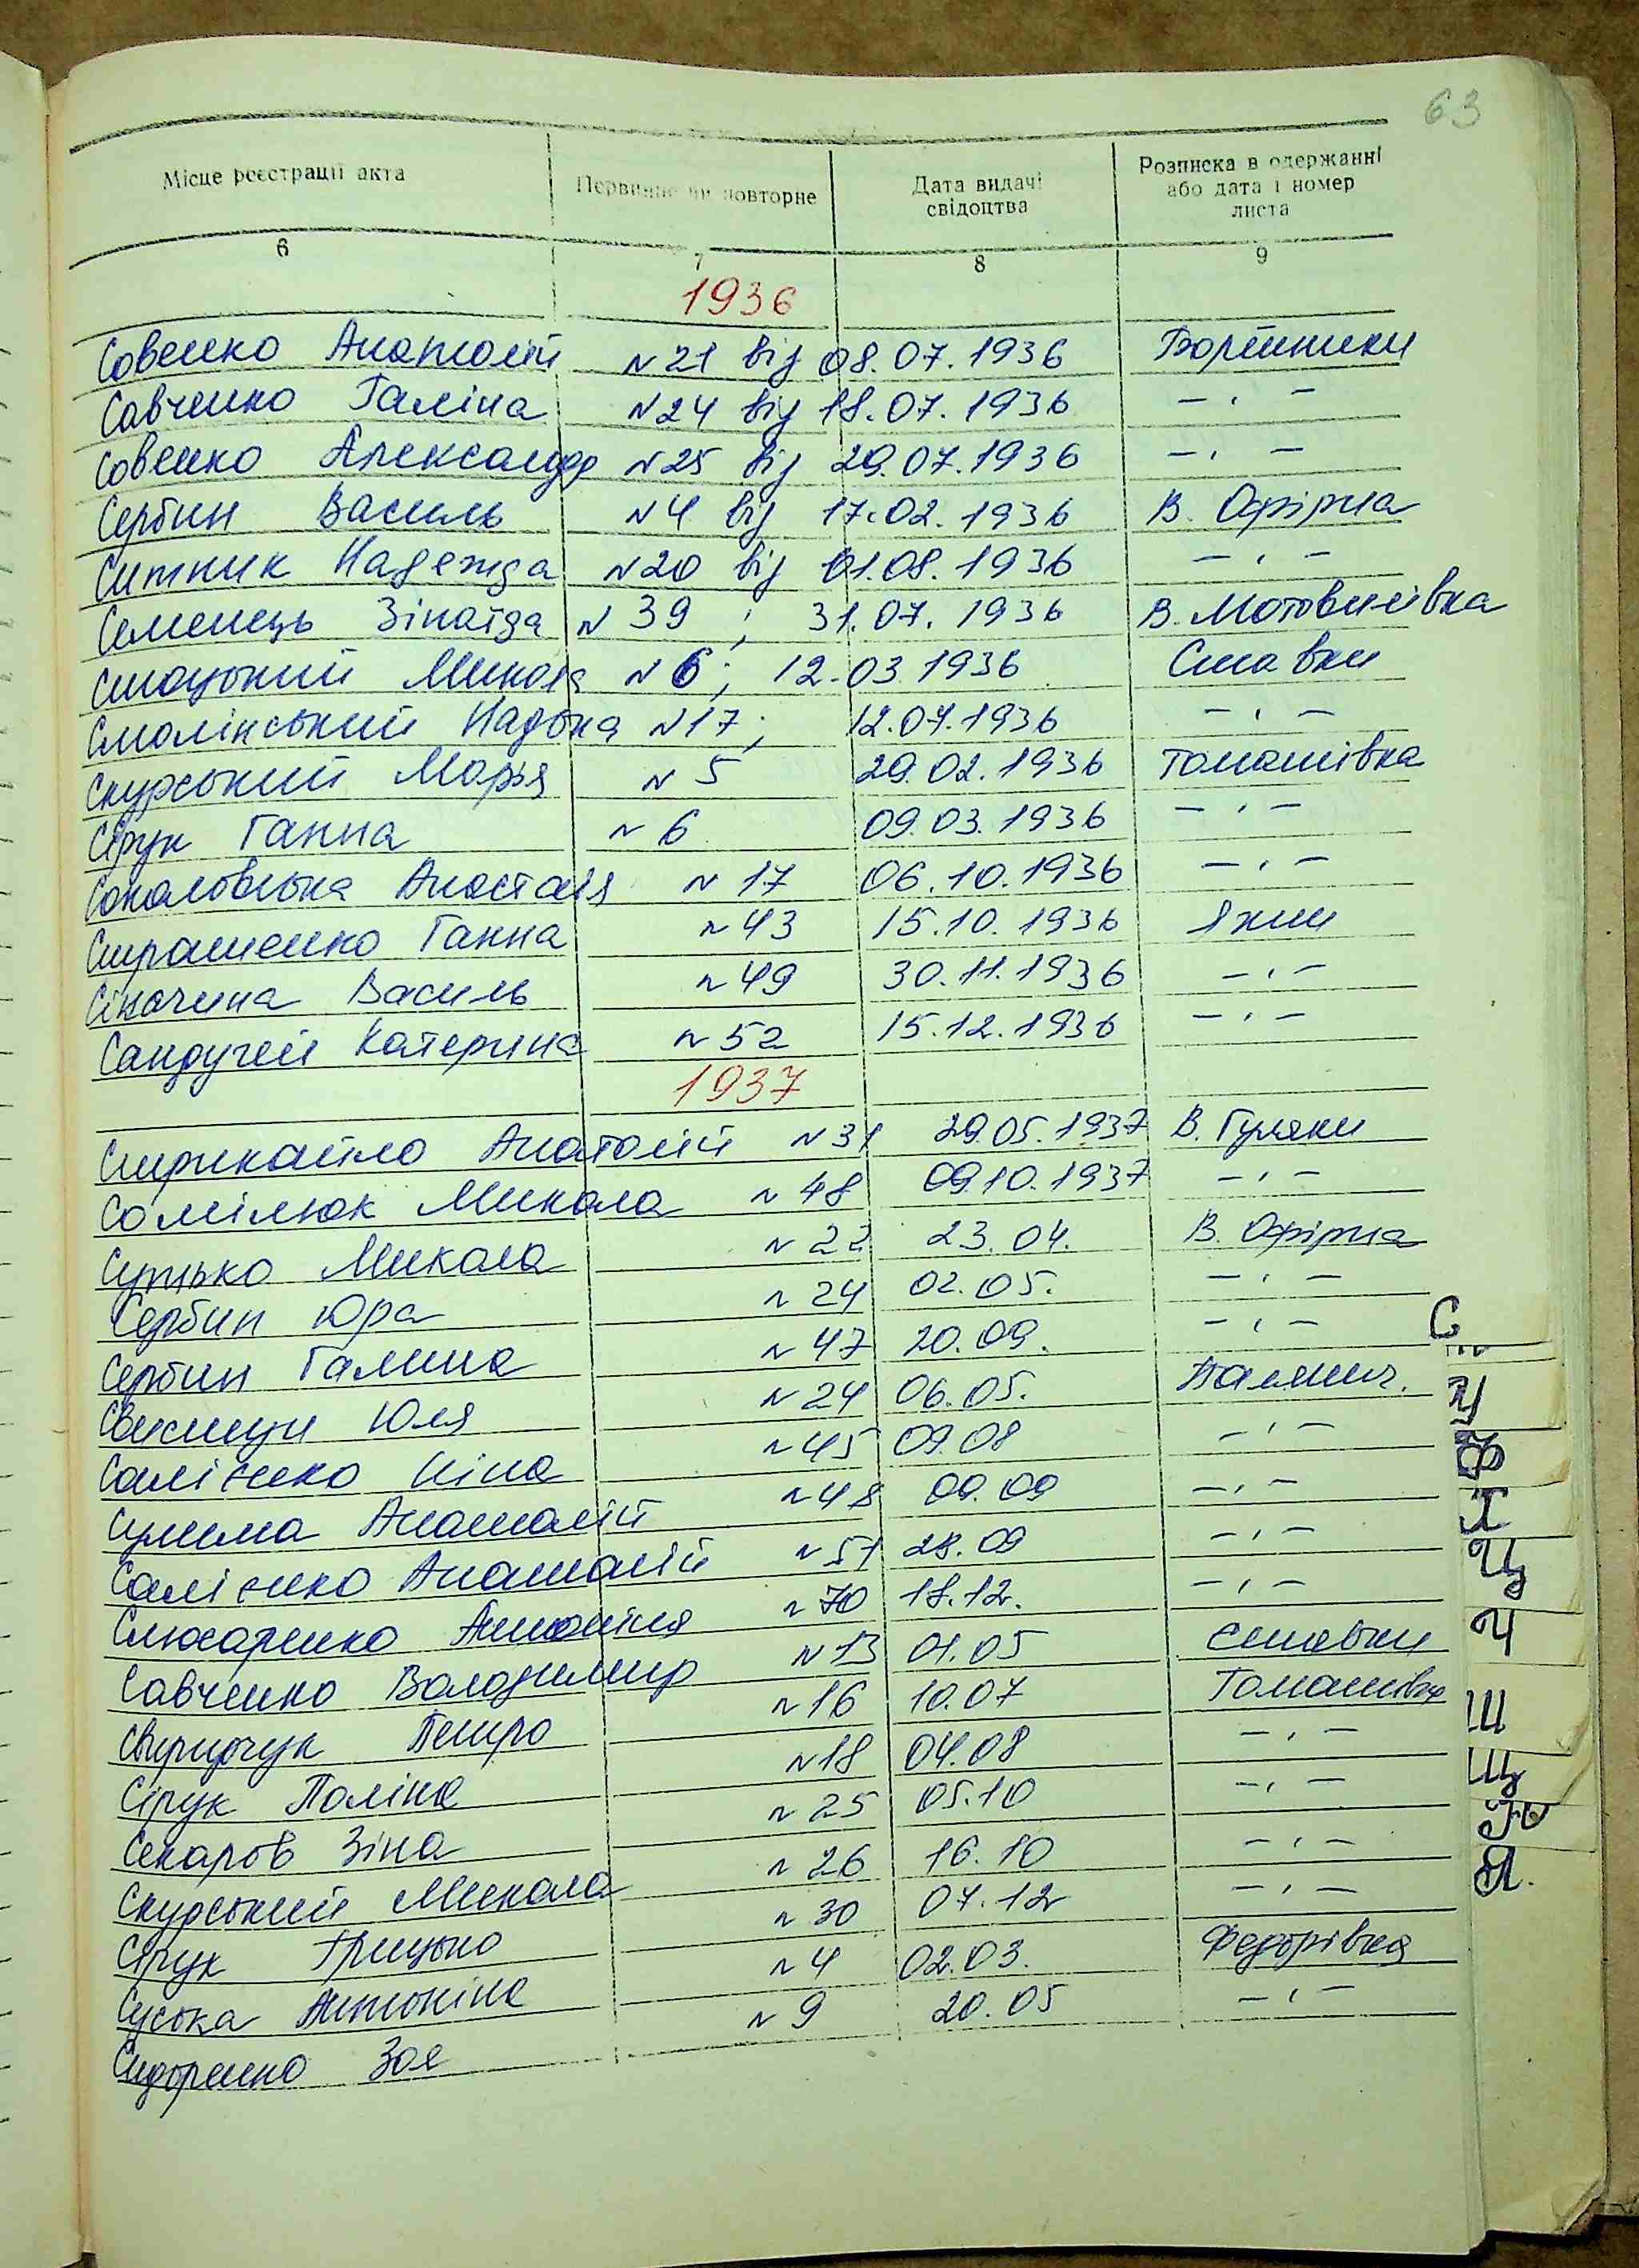 63
Місце реєстрації акта Первинне чи повторне Дата видачі свідоцтва Розписка в одержанні або дата і номер листа
6 7 8 9
1936
Совенко Анатолій N21 від 08.07.1936
Савченко Галіна N24 від 18.07.1936 – , –
Совенко Александр N25 від 29.07.1936 – , –
Сербин Василь N4 від 17.02.1936 В. Офірна
Ситник Надежда N20 від 01.08.1936 – , –
Семенець Зінаїда N 39 ; 31.07.1936 В. Мотовилівка
Микола N 6 ; 12.03.1936 Ставки
Смолінський Надька N17 ; 12.07.1936 – , –
Скурський Марія N 5 29.02.1936 Томашівка
Сірук Ганна N 6 09.03.1936 – , –
Соколовська Анастасія N 17 06.10.1936 – , –
Страшенко Ганна N 43 15.10.1936 Яхни
Василь N 49 30.11.1936 – , –
Катерина N 52 15.12.1936 – , –
1937
Стрикайло Анатолій N 31 29.05.1937 В. Гуляки
Самілюк Микола N 48 09.10.1937 – , –
Микола N 22 23.04. В. Офірна
Сербин Юра N 24 02.05. – , –
Сербин Галина N 47 20.09. – , –
Юля N 24 06.05.
Салієнко Ніна N 45 09.08 – , –
Сулима Анатолій N 48 09.09 – , –
Салієнко Анатолій N 51 28.09 – , –
Слюсаренко Антоніна N 70 18.12. – , –
Савченко Володимир N 13 01.05 Ставки
Свиридчук Петро N 16 10.07
Сірук Поліна N 18 04.08 – , –
Секаров Зіна N 25 05.10 – , –
Скурський Микола N 26 16.10 – , –
Сірук Грицько N 30 07.12 – , –
Суська Антоніна N 4 02.03. Федорівка
Сидоренко Зоя N 9 20.05 – , –
С
У
Ф
Х
Ц
Ч
Ш
Щ
Ю
Я.